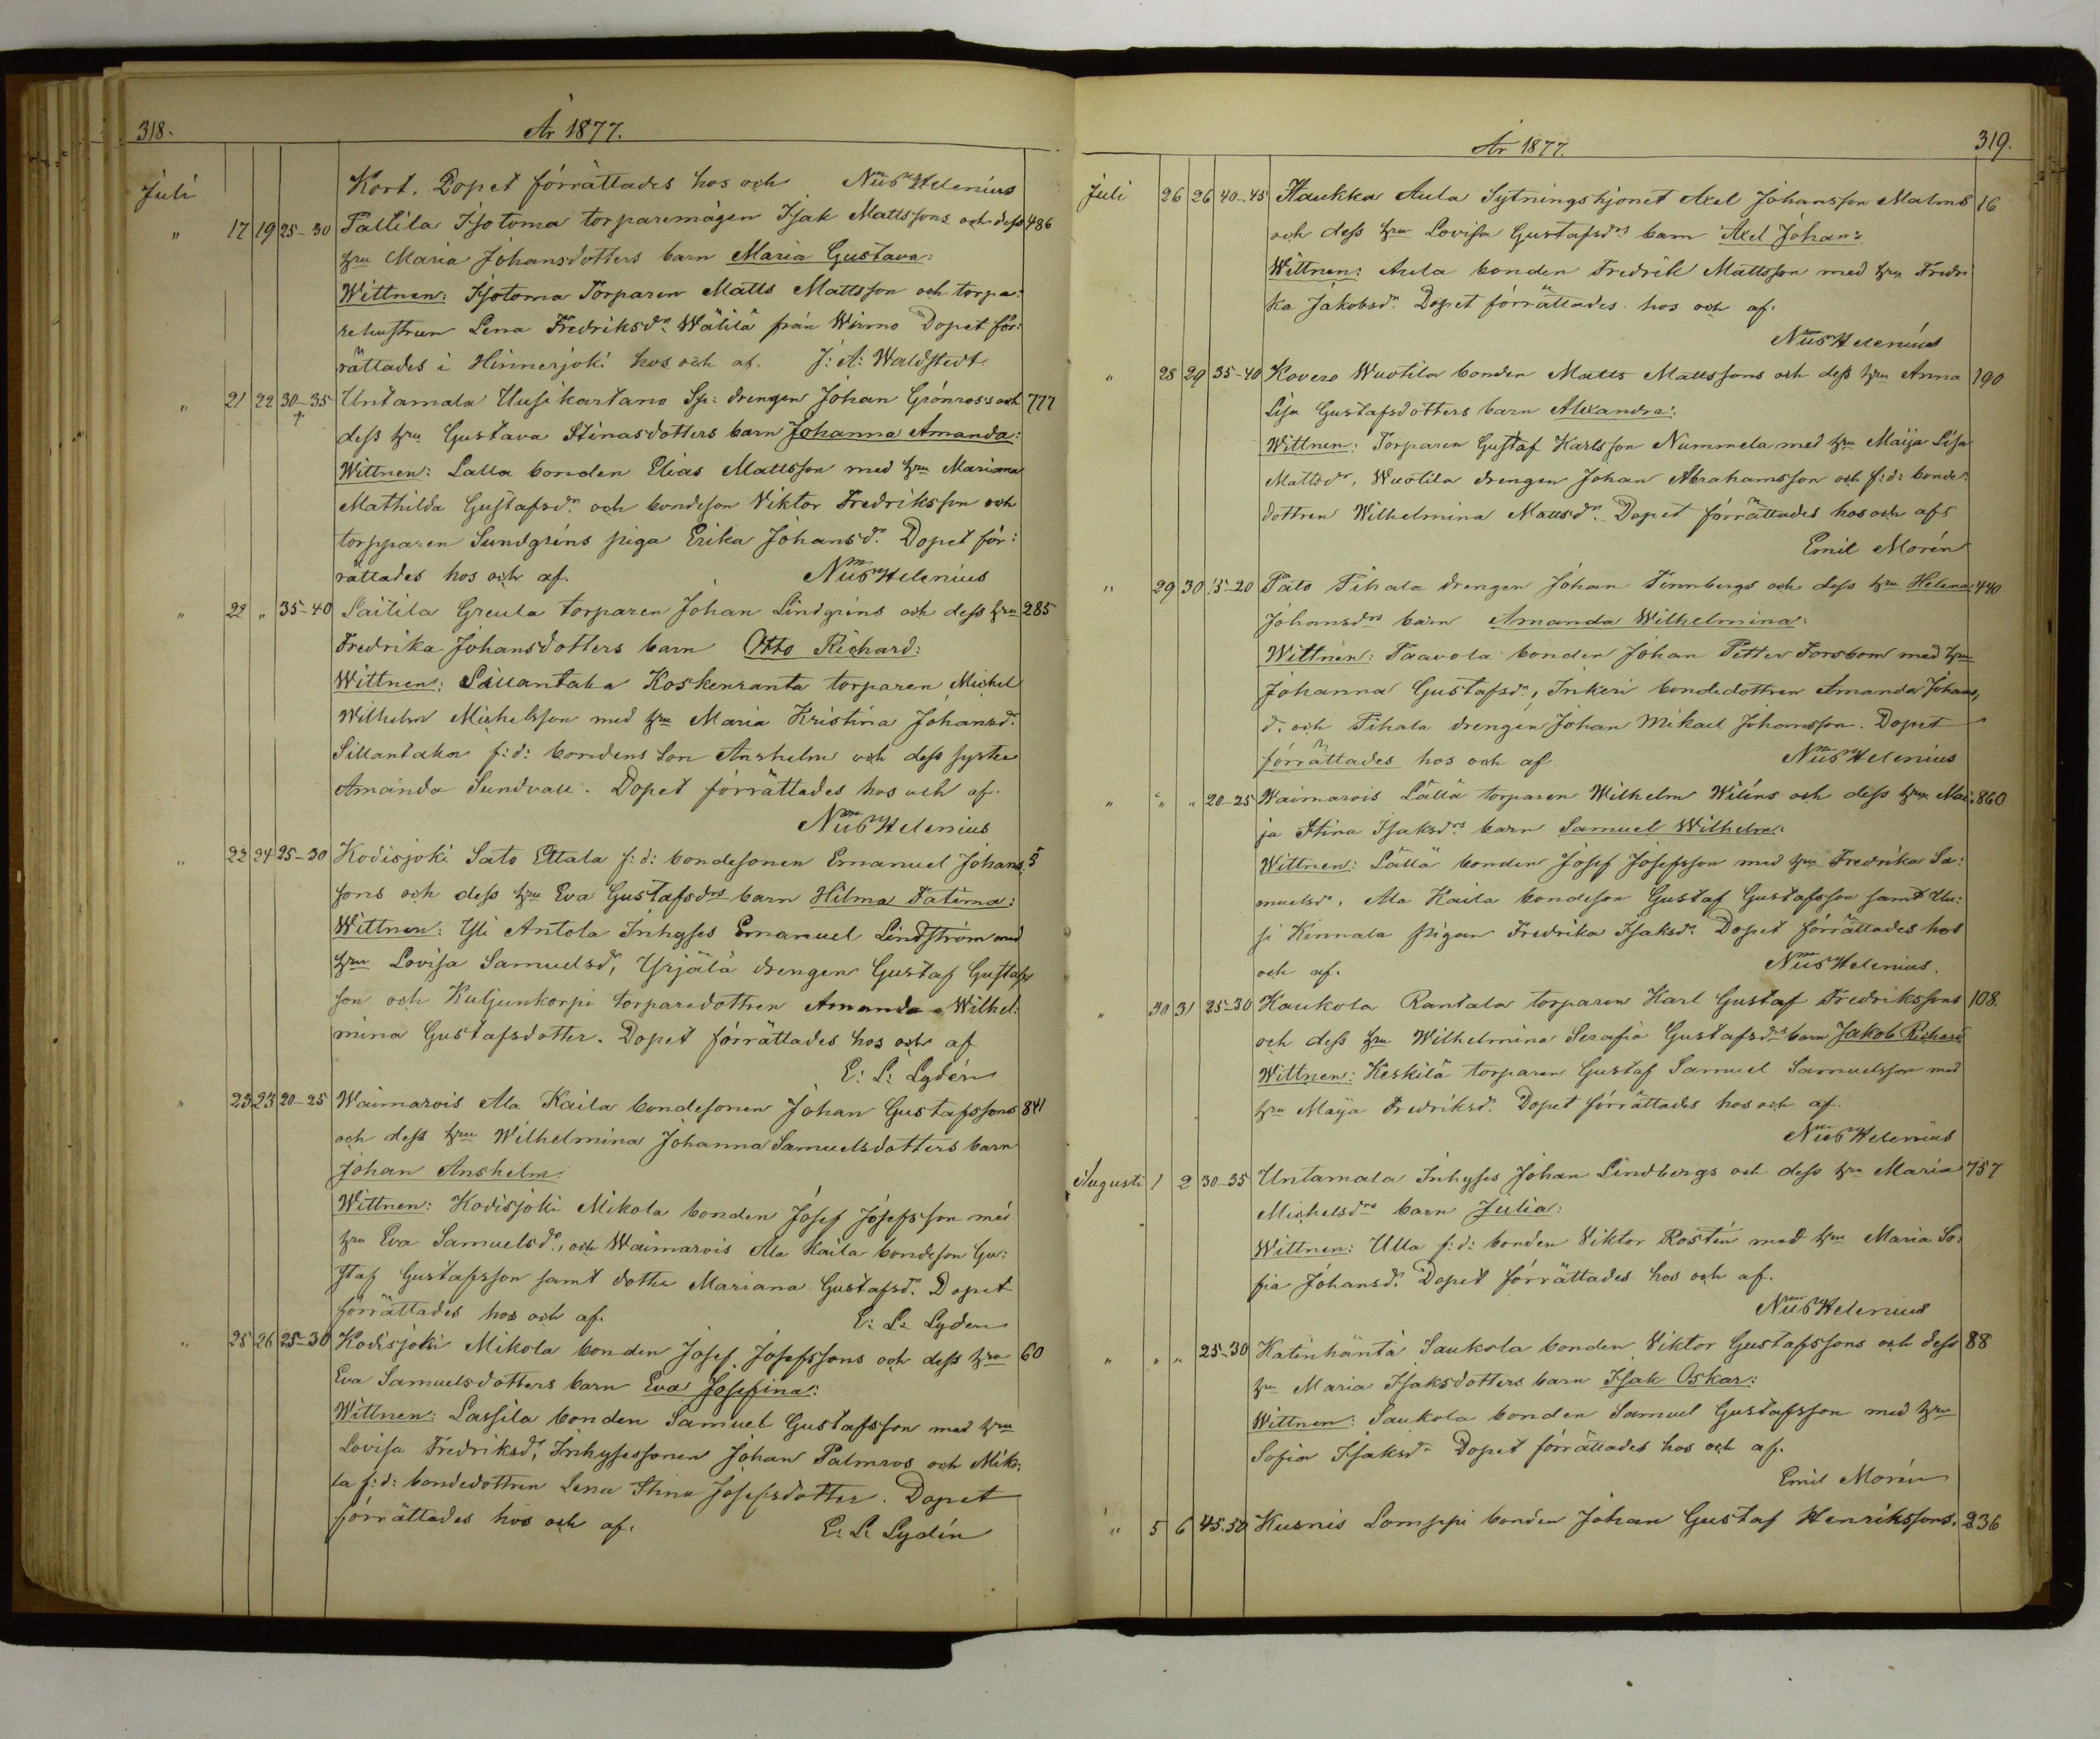 318.
År 1877.
Juli
Kort. Dopet förrättades hos och Nils Helenius
" 17 19 25-30 Pallila Isotoma torparemågen Isak Mattssons och dess 486
hru Maria Johansdotters barn Maria Gustava:
Wittnen: Isotoma Torparen Matts Mattsson och torpa:
rehustrun Lena Fredriksdr. Wälilä från Wirmo Dopet för:
rättades i Hinnerjoki hos och af. J: A: Waldstedt.
" 21 22 30-35 Untamala Uusikartano Sp: drengen Johan Grönross och 777
dess hru Gustava Stinasdotters barn Johanna Amanda:
Wittnen: Lalla bonden Elias Mattsson med hru Mariana
Mathilda Gustafsdr. och bondeson Viktor Fredriksson och
torpparen Sundgréns piga Erika Johansdr. Dopet för:
rättades hos och af. Helenius
" 22 " 35-40 Laitila Greula torparen Johan Lindgréns och dess hru 285
Fredrika Johansdotters barn Otto Richard:
Wittnen: Sillantaka Koskenranta torparen Michel
Wilhelm Michelsson med hru Maria Kristina Johansdr.
Sillantaka f:d: bondens Son Anshelm och dess syster
Amanda Sundvall. Dopet förrättades hos och af.
Helenius
" 22 24 25-30 Kodisjoki Sato Ettala f:d: bondesonen Emanuel Johans: 5
sons och dess hru Eva Gustafsdrs barn Hilma Fatima:
Wittnen: Yli Antola Inhyses Emanuel Lindström med
hru Lovisa Samuelsdr, Yrjälä drengen Gustaf Gustafs
son och Kuljunkorpi torparedottren Amanda Wilhel:
mina Gustafsdotter. Dopet förrättades hos och af
E: L: Lydén
" 23 23 20-25 Waimarois Ala Kaila bondesonen Johan Gustafssons 841
och dess hru Wilhelmina Johanna Samuelsdotters barn
Johan Anshelm
Wittnen: Kodisjoki Mikola bonden Josef Josefsson med
hru Eva Samuelsdr, och Waimarois Ala Kaila bondeson Gu:
staf Gustafsson samt dotter Mariana Gustafsdr. Dopet
förrättades hos och af. E: L: Lyden
" 25 26 25-30 Kodisjoki Mikola bonden Josef Josefssons och dess hru 60
Eva Samuelsdotters barn Eva Josefina:
Wittnen: Lassila bonden Samuel Gustafsson med hru
Lovisa Fredriksdr, Inhysessonen Johan Palmros och Miko:
la f:d: bondedottren Lena Stina Josefsdotter. Dopet
förrättades hos och af. E: L: Lydén
År 1877.
319.
Juli 26 26 40-45 Haukka Aula Sytningshjonet Axel Johansson Malms 16
och dess hru Lovisa Gustafsdrs barn Axel Johan:
Wittnen: Aula bonden Fredrik Mattsson med hru Fredri
ka Jakobsdr. Dopet förrättades hos och af.
Helenius
" 28 29 35-40 Kovero Wuotila bonden Matts Mattssons och dess hru Anna 190
Lisa Gustafsdotters barn Alexandra:
Wittnen: Torparen Gustaf Karlsson Nummela med hru Maija Lisa
Mattsdr, Wuotila drengen Johan Abrahamsson och f:d: bonde:
dottren Wilhelmina Mattsdr. Dopet förrättades hos och af
Emil Morén
" 29 30 15-20 Pato Pihala drengen Johan Tennbergs och dess hru Helena 440
Johansdrs barn Amanda Wilhelmina:
Wittnen: Paavola bonden Johan Petter Forsbom med hru
Johanna Gustafsdr, Inkeri bondedottren Amanda Johans,
d. och Pihala drengen Johan Mikael Johansson. Dopet
förrättades hos och af Helenius
" " " 20-25 Waimarois Lällä torparen Wilhelm Wiléns och dess hru Mai: 860
ja Stina Isaksdrs barn Samuel Wilhelm:
Wittnen: Lällä bonden Josef Josefsson med hru Fredrika Sa:
muelsdr, Ala Kaila bondeson Gustaf Gustafsson samt Uu:
si Kinnala pigan Fredrika Isaksdr. Dopet förrättades hos
och af. Helenius.
" 30 31 25-30 Kaukola Rantala torparen Karl Gustaf Fredrikssons 108.
och dess hru Wilhelmina Serafia Gustafsdrs barn Jakob Richard
Wittnen: Keskilä torparen Gustaf Samuel Samuelsson med
hru Maija Fredriksdr. Dopet förrättades hos och af.
Helenius
Augusti 1 2 30-35 Untamala Inhyses Johan Lindbergs och dess hru Maria 757
Michelsdrs barn Julia:
Wittnen: Ulla f:d: bonden Viktor Rostén med hru Maria So:
fia Johansdr. Dopet förrättades hos och af.
Helenius
" " " 25-30 Katinhäntä Saukola bonden Viktor Gustafssons och dess 88
hru Maria Isaksdotters barn Isak Oskar:
Wittnen: Saukola bonden Samuel Gustafsson med hru
Sofia Isaksdr. Dopet förrättades hos och af.
Emil Morén
" 5 6 45-50 Kusnis Lomppi bonden Johan Gustaf Henrikssons. 236